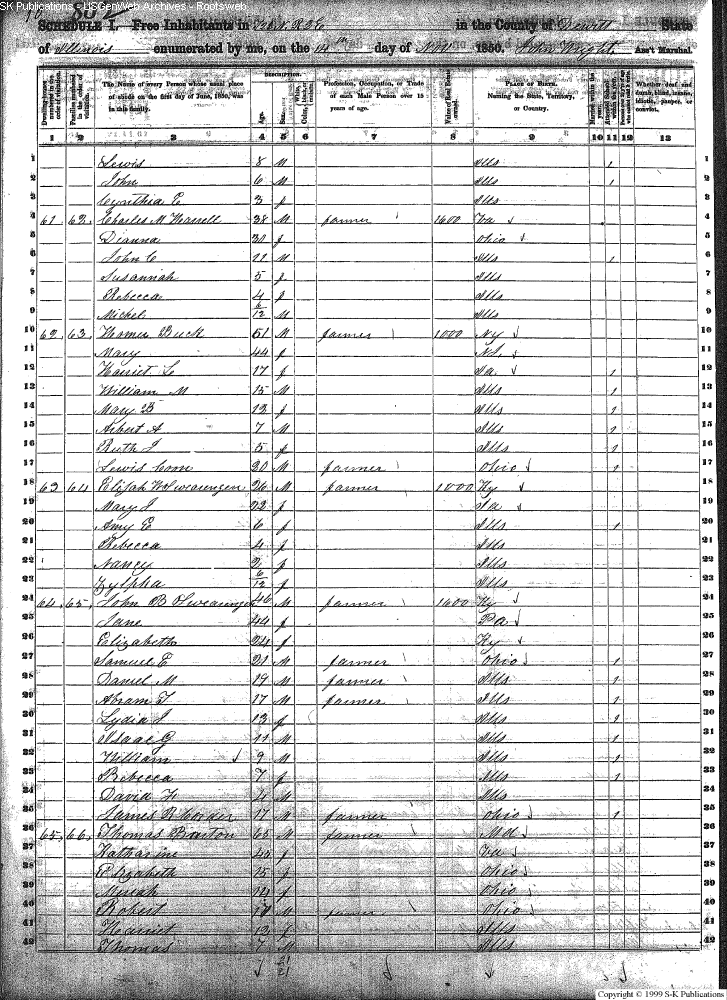 SK Publications - USGenWeb Archives - Rootsweb
SCHEDULE I. Free Inhabitants in in the County of Dewitt State
of Illinois enumerated by me, on the 14th day of Nov 1850. John Wright Ass't Marshal.
DESCRIPTION.
Dwelling-houses numbered in the order of visitation.
Families numbered in the order of visitation.
The Name of every Person whose usual place of abode on the first day of June, 1850, was in this family.
Age.
Sex.
Color, White, black, or mulatto.
Profession, Occupation, or Trade of each Male Person over 15 years of age.
Value of Real Estate owned.
PLACE OF BIRTH. Naming the State, Territory, or Country.
Married within the year.
Attended School within the year.
Whether deaf and dumb, blind, insane, idiotic, pauper, or convict.
1 2 3 4 5 6 7 8 9 10 11 12 13
1 Lewis 8 M Ills 1 1
2 John 6 M Ills 1 2
3 Cynthia E 3 f Ills 3
4 61 62 Charles M Harrell 38 M farmer 1600 Va 4
5 Dianna 30 f Ohio 5
6 John C 11 M Ills 1 6
7 Susannah 5 f Ills 7
8 Rebecca 4 f Ills 8
9 Michel 6/12 M Ills 9
10 62 63 Homer Buck 51 M farmer 1000 Ny 10
11 Mary 44 f 11
12 Harriet L 17 f Pa 1 12
13 William M 15 M Ills 1 13
14 Mary B 12 f Ills 1 14
15 Albert A 7 M Ills 1 15
16 Ruth J 5 f Ills 1 16
17 Lewis Coon 20 M farmer Ohio 1 17
18 63 64 Elijah W Swearengen 26 M farmer 1000 Ky 18
19 Mary J 22 f 19
20 Amy E 6 f Ills 1 20
21 Rebecca 4 f Ills 21
22 Nancy 2 f Ills 22
23 Zylpha 6/12 f Ills 23
24 64 65 John B Swearingen 46 M farmer 1600 Ky 24
25 Jane 44 f Pa 25
26 Elizabeth 24 f Ky 26
27 Samuel E 21 M farmer Ohio 1 27
28 Daniel M 19 M farmer Ills 1 28
29 Abram T 17 M farmer Ills 1 29
30 Lydia J 13 f Ills 1 30
31 Isaac G 11 M Ills 1 31
32 William 9 M Ills 1 32
33 Rebecca 7 f Ills 1 33
34 David W 4 M Ills 34
35 James R Corder 17 M farmer Ohio 1 35
36 65 66 Thomas Barton 65 M farmer Md 36
37 Katharine 40 f Va 37
38 Elizabeth 15 f Ohio 38
39 14 f Ohio 39
40 Robert 17 M farmer Ohio 40
41 Harriet 12 f Ills 41
42 Thomas 7 M Ills 42
21
21
Copyright © 1999 S-K Publications